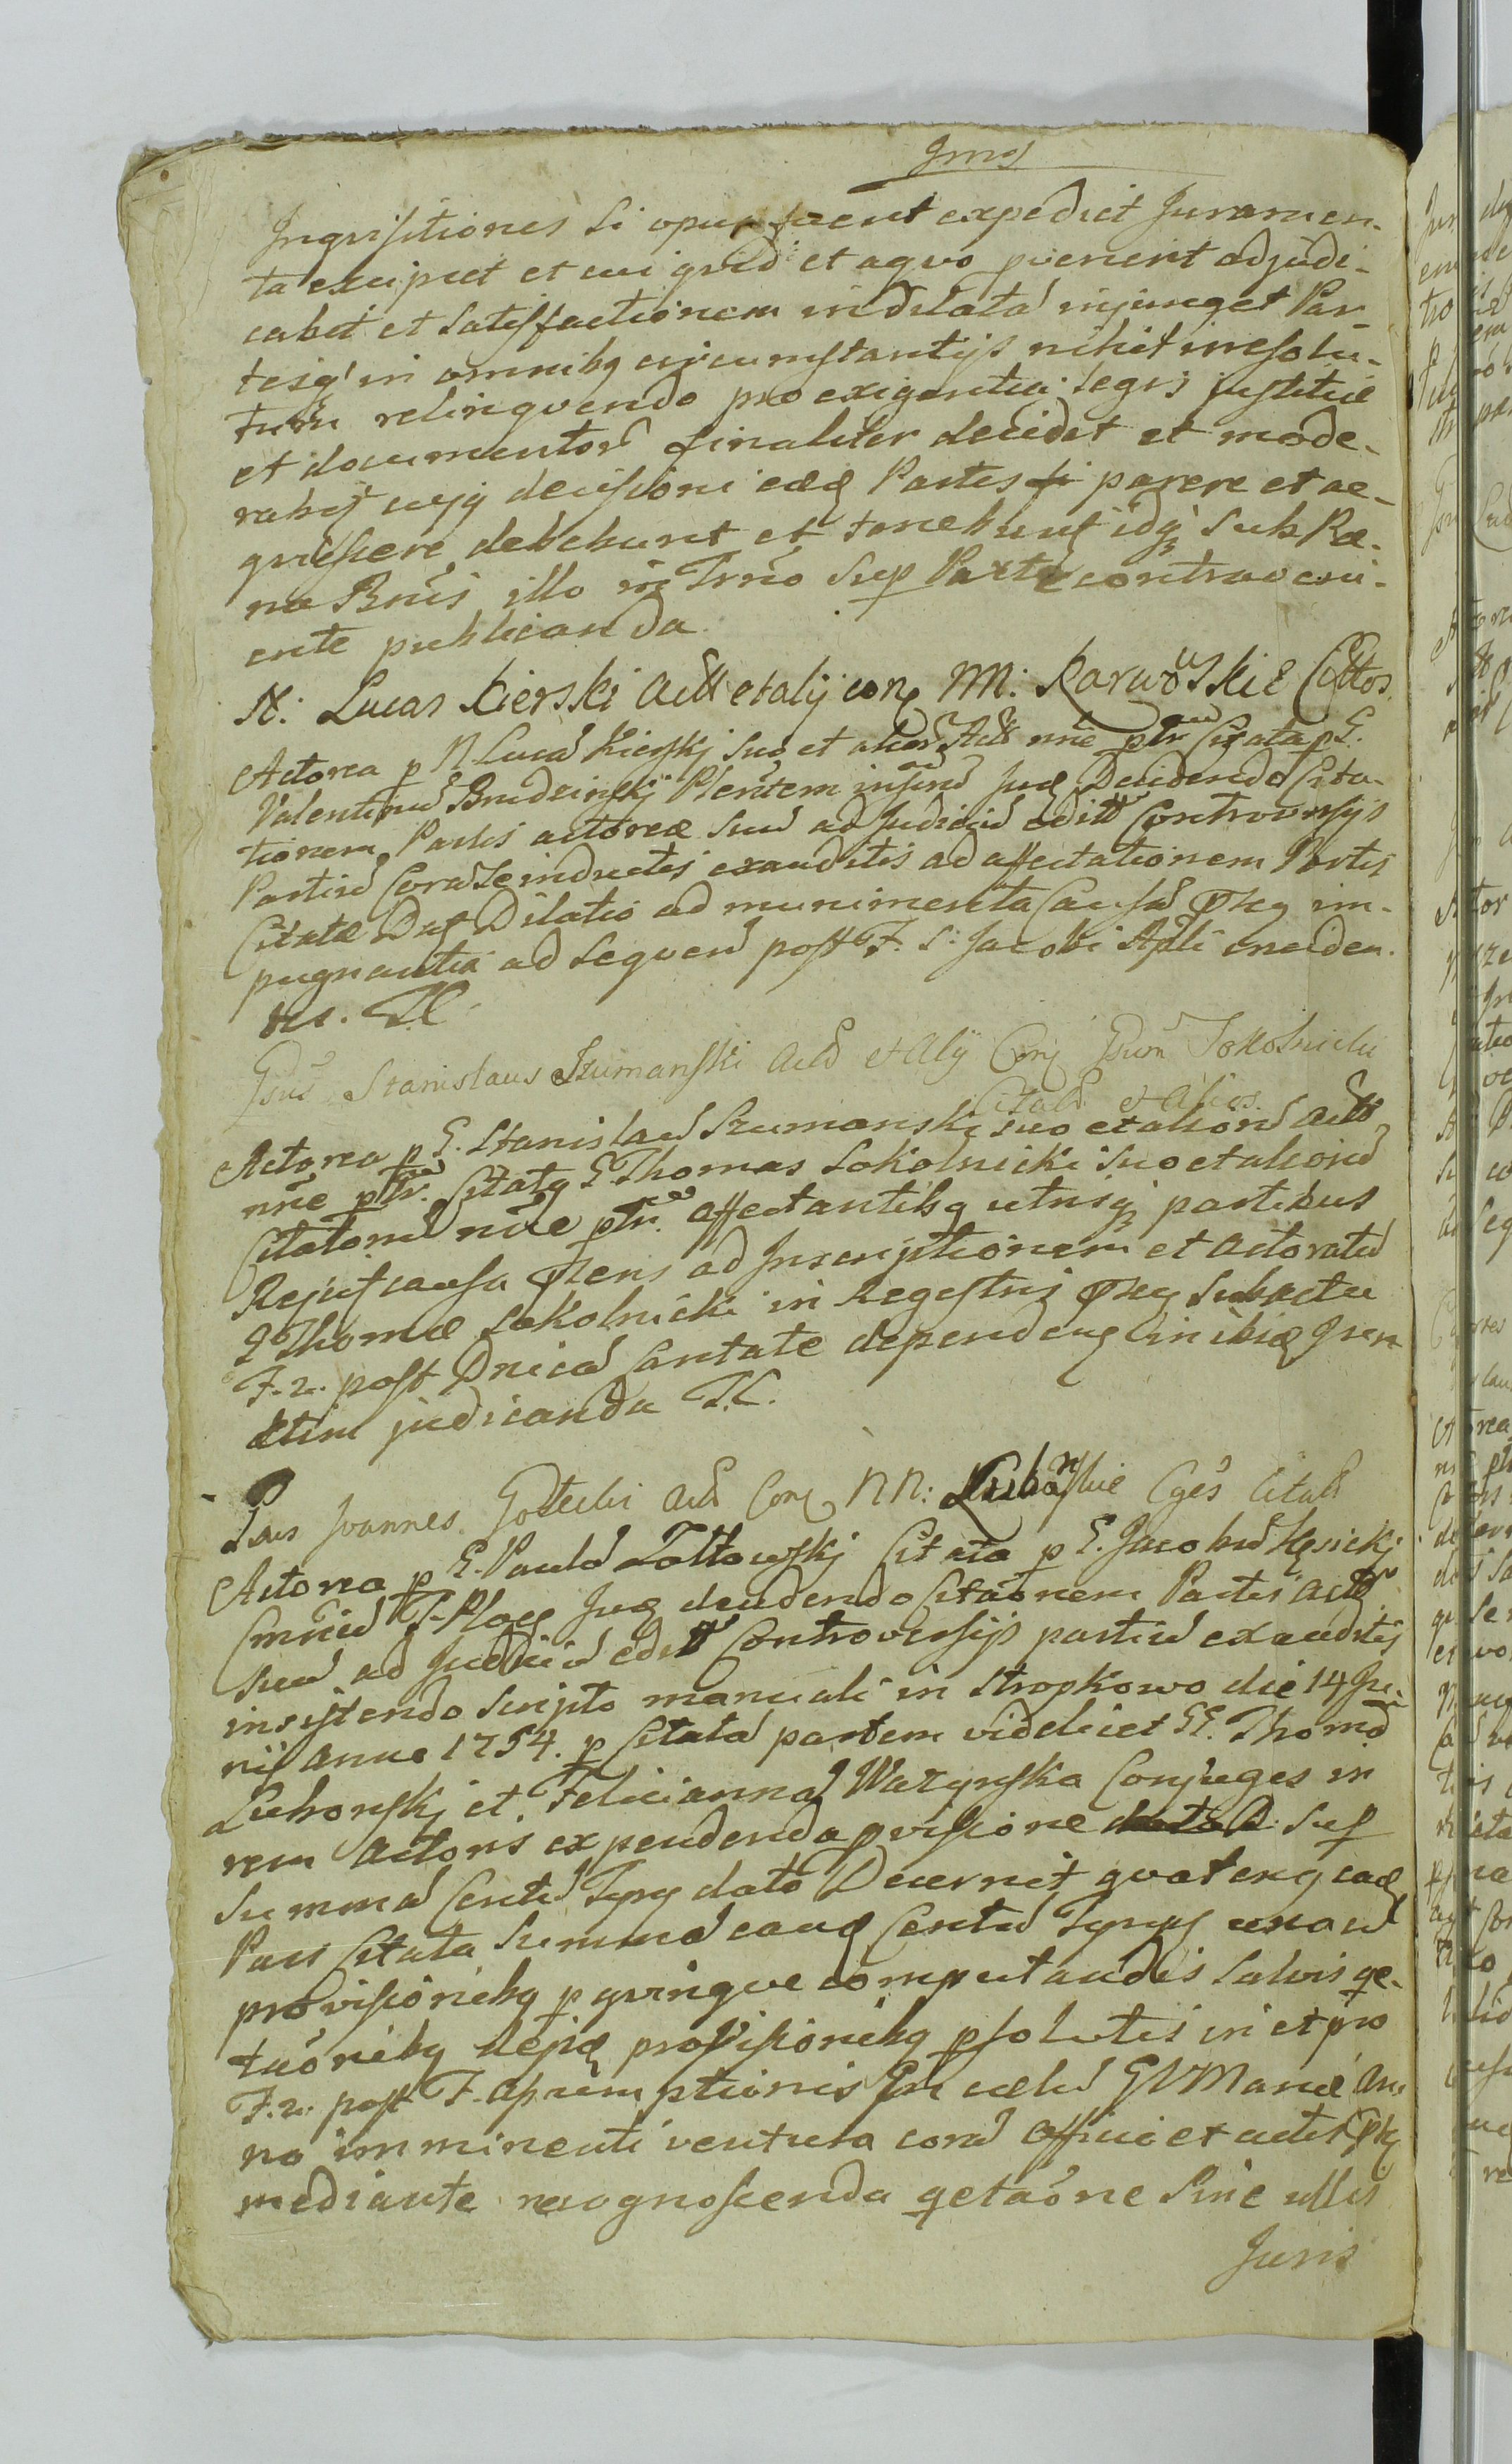 Inquisitiones si opus fuerit expediet Juramen-
ta excipiet et cui quid et a quo pvenerit adjudi-
cabit et satisfactionem indilata injunget Par-
tesq in omnibq circumstantijs nihil irresolu-
tum relinquendo pro exigentia legis justitiæ
et documentor finaliter decidet et mode-
rabit cujq decisioni eæd Partes parere et ac-
quiescere debebunt et tenebunt idq sub Pœ-
na Bnis illo in Trno sup Parte contraveni-
ente publicanda
N: Lucas Kierski Act et alij conq NN:
Actorea p N Luca Kierskj suo et alior Act nne ptr Citata p G.
Valentinu Brudzinskj Plentem Decidendo Cita-
tionem Partis actoreæ suu ad Judiciu edit Controversijs
Partiu Cora Se inductis exauditis ad affectationem Partis
Citatæ Dat Dilatio ad munimenta Causæ im-
pugnantia ad sequen post F. S. Jacobi Apli inciden.
ter. TC
Gsus Stanislaus Szumanski Act et Alij Conq Gsum Sokolnicki
Citat et Alios.
Actorea p G. Stanislau Szumanski suo et alioru Act
nne ptr. Citatq G Thomas Sokolnicki suo et alioru
Citatoru nne ptr. affectantibq utrisq partibus
Rejicit causa pns ad Inscriptionem et actoratu
G Thomæ Sokolnicki in Regestris sub actu
F. 2. post Dnica Cantate dependen in ibiq
judicanda TC.
Gsus Joannes Act Conq NN: Lubonskie Cges Citat
Actorea p G. Paulu Zoltowskj Citata p G. Jacobu Kęsickj
decidendo Citaonem Partis Act
suu ad Judiciu edit Controversijs partiu exauditis
insistendo scripto manuali in Stropkowo die 14 Ju-
nij Anno 1754. p Citata partem videlicet GG. Thoma
Lubonskj et Felicianna Conjuges in
rem Actoris expendenda pvisione sup
Summa Centu Tynf dato Decernit quatenq eæd
Pars Citata Summa eand Centu Tynf una cu
provisionibq p quinque computandis salvis qe-
taonibq provisionibq psolutis in et pro
F. 2. post F. Assumptionis In cælu GVMariæ An-
no imminenti ventura cora Officio et actis
mediante recognoscenda qetaone sine ullis
Juris